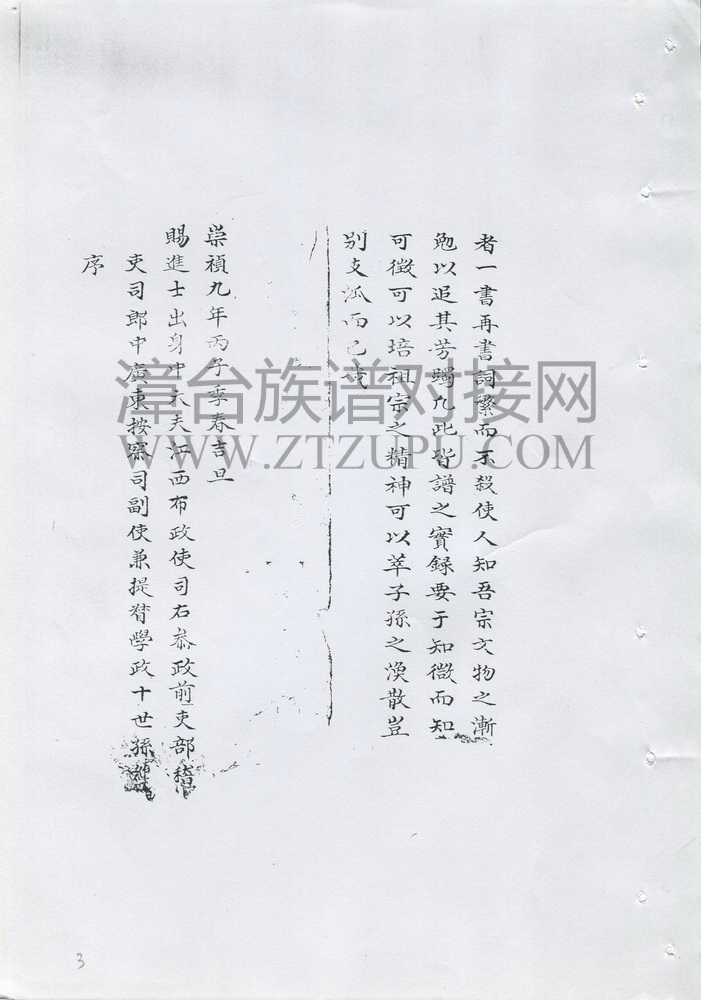 者一書再書詞繁而不殺使人知吾宗文物之漸
勉以追其芳躅凡此皆譜之實錄要于知微而知
可徵可以培祖宗之精神可以萃子孫之渙散豈
別支派而已哉
崇禎九年丙子季春吉旦
賜進士出身中大夫江西布政使司右叅政前吏部稽
吏司郎中廣東按察司副使兼提督學政十世孫
序
漳台族谱对接网
WWW.ZTZUPU.COM
3